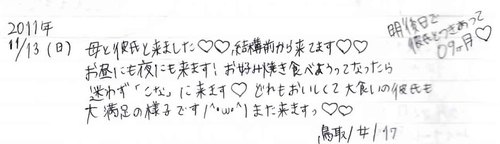 2011年
11/13（日） 母と彼氏と来ました♡♡結構前から来てます♡♡
お昼にも夜にも来ます！お好み焼き食べようってなったら
迷わず「こな」に来ます♡ どれもおいしくて大食いの彼氏も
大満足の様子です(^ω^)また来ますっ♡♡
鳥取
明後日で
彼氏とつきあって
9ヶ月♡